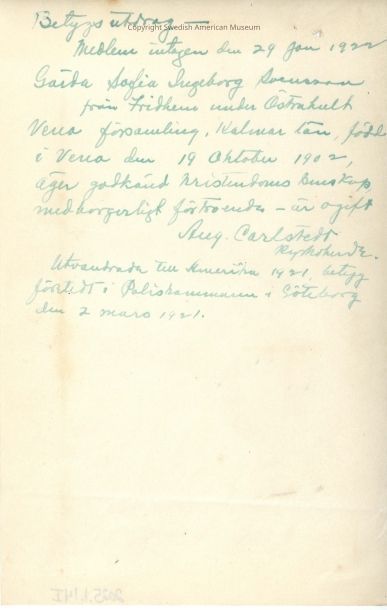 Betygsutdrag —
Copyright Swedish American Museum
Medlem intagen den 29 Jan 1922
Gärda Sofia Ingeborg Svensson
från Fridhem under Östrahult
Vena församling, Kalmar län, född
i Vena den 19 Oktober 1902,
äger godkänd kristendoms kunskap,
medborgerligt förtroende – är ogift
Aug. Carlstedt
Kyrkoherde.
Utvandrade till Amerika 1921, betyg
företedt i Poliskammaren i Göteborg
den 2 mars 1921.